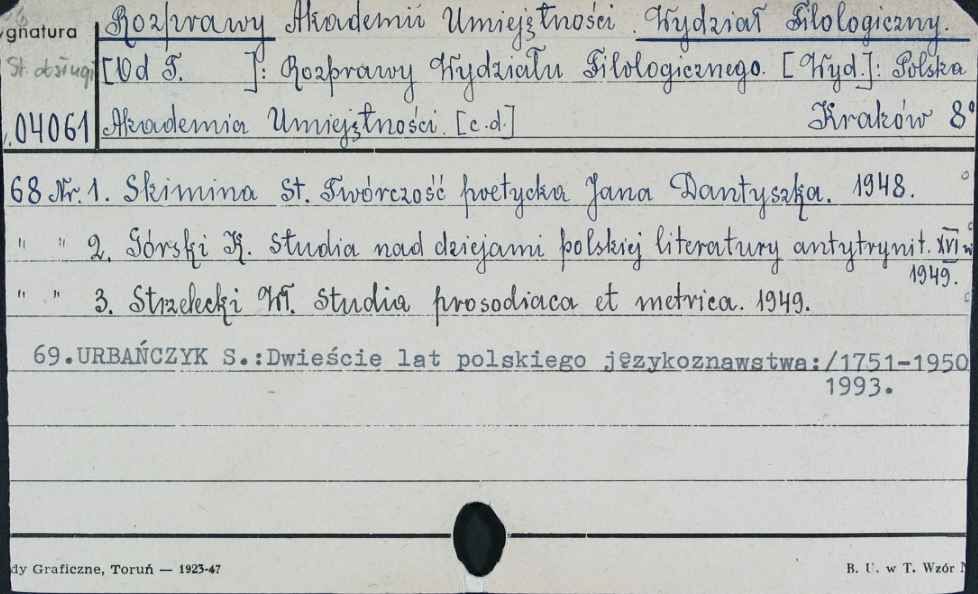 ygnatura
St. obsługi
04061
Rozprawy Akademii Umiejętności. Wydział Filologiczny.
[Od T. ]: Rozprawy Wydziału Filologicznego. [Wyd.]: Polska
Akademia Umiejętności. [c.d.] Kraków 8°
68 Nr. 1. Skimina St. Twórczość poetycka Jana Dantyszka. 1948.
" " 2. Górski K. Studia nad dziejami polskiej literatury antytrynit. XVI w
1949.
" " 3. Strzelecki Wł. Studia prosodiaca et metrica. 1949.
69.URBAŃCZYK S.:Dwieście lat polskiego językoznawstwa:/1751-1950
1993.
dy Graficzne, Toruń — 1923-47
B. U. w T. Wzór N